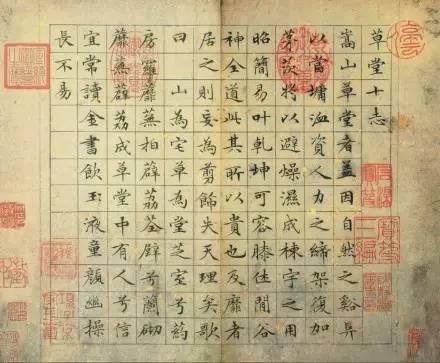 草堂十志
嵩山草堂者盖因自然之谿阜
以當墉洫資人力之締架復加
茅茨將以避燥濕成棟宇之用
昭簡易叶乾坤可容膝休閒谷
神全道此其所以貴也及靡者
居之則妄為剪飾失天理矣歌
曰山為宅草為堂芝室兮葯
房羅蘼蕪拍薜荔荃壁兮蘭砌
蘼蕪薜荔成草堂中有人兮信
宜常讀金書飲玉液童顏幽操
長不易